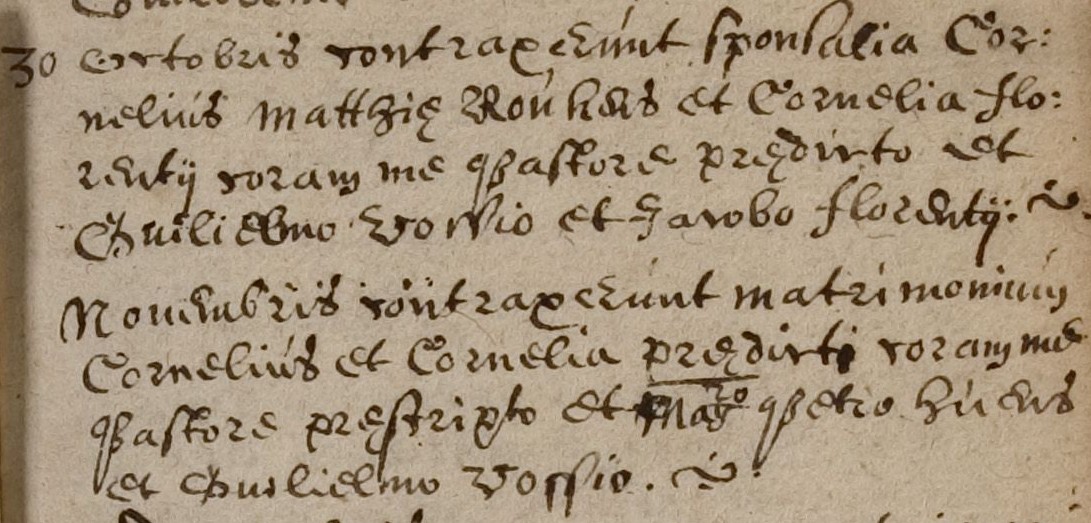 30 octobris contraxerunt sponsalia Cor:
nelius Matthię Rouhens et Cornelia Flo:
rentij coram me Pastore prędicto et
Guilielmo Vossio et Jacobo Florentij.
Nouembris contraxerunt matrimonium
Cornelius et Cornelia prędicti coram me
Pastore pręscripto et Mag ro Petro Huens
et Guilielmo Vossio.